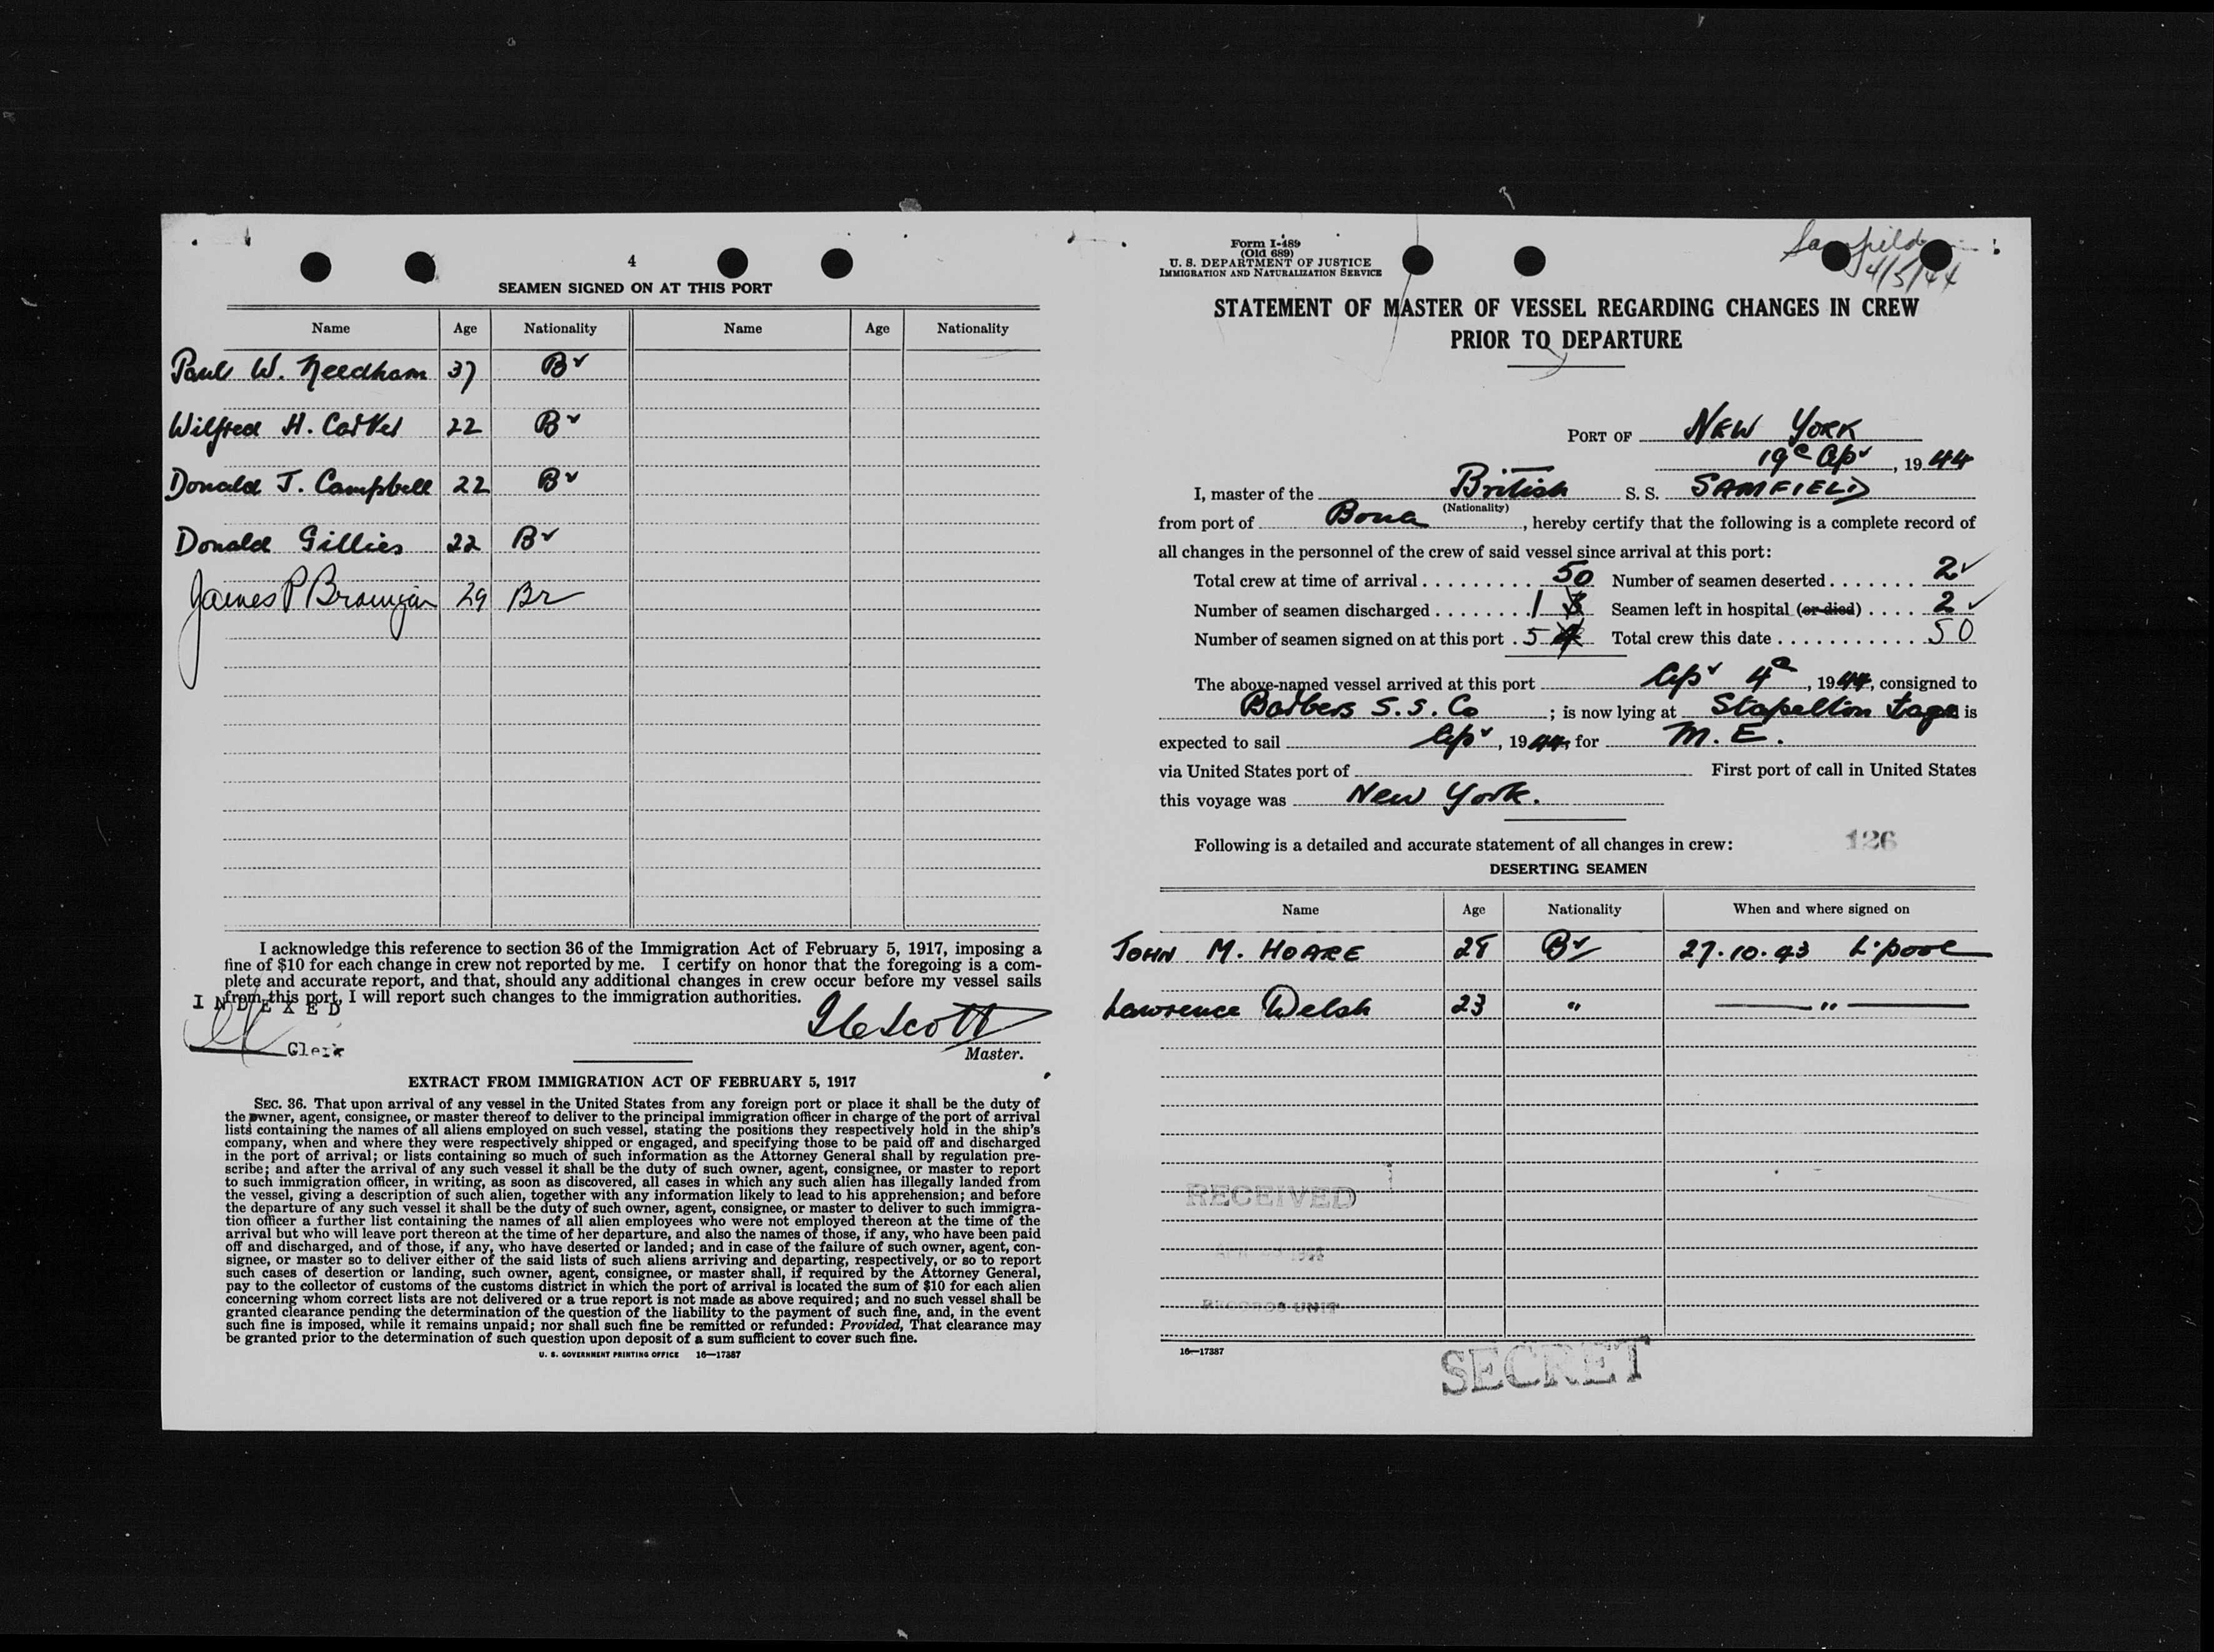 4
SEAMEN SIGNED ON AT THIS PORT
Name Age Nationality Name Age Nationality
Paul W. Needham 37 Br
Wilfred H. 22 Br
Donald J. Campbell 22 Br
Donald Gillies 22 Br
James P 29 Br
I acknowledge this reference to section 36 of the Immigration Act of February 5, 1917, imposing a
fine of $10 for each change in crew not reported by me. I certify on honor that the foregoing is a com-
plete and accurate report, and that, should any additional changes in crew occur before my vessel sails
from this port, I will report such changes to the immigration authorities.
INDEXED
Scott
Clerk
Master.
EXTRACT FROM IMMIGRATION ACT OF FEBRUARY 5, 1917
SEC. 36. That upon arrival of any vessel in the United States from any foreign port or place it shall be the duty of
the owner, agent, consignee, or master thereof to deliver to the principal immigration officer in charge of the port of arrival
lists containing the names of all aliens employed on such vessel, stating the positions they respectively hold in the ship's
company, when and where they were respectively shipped or engaged, and specifying those to be paid off and discharged
in the port of arrival; or lists containing so much of such information as the Attorney General shall by regulation pre-
scribe; and after the arrival of any such vessel it shall be the duty of such owner, agent, consignee, or master to report
to such immigration officer, in writing, as soon as discovered, all cases in which any such alien has illegally landed from
the vessel, giving a description of such alien, together with any information likely to lead to his apprehension; and before
the departure of any such vessel it shall be the duty of such owner, agent, consignee, or master to deliver to such immigra-
tion officer a further list containing the names of all alien employees who were not employed thereon at the time of the
arrival but who will leave port thereon at the time of her departure, and also the names of those, if any, who have been paid
off and discharged, and of those, if any, who have deserted or landed; and in case of the failure of such owner, agent, con-
signee, or master so to deliver either of the said lists of such aliens arriving and departing, respectively, or so to report
such cases of desertion or landing, such owner, agent, consignee, or master shall, if required by the Attorney General,
pay to the collector of customs of the customs district in which the port of arrival is located the sum of $10 for each alien
concerning whom correct lists are not delivered or a true report is not made as above required; and no such vessel shall be
granted clearance pending the determination of the question of the liability to the payment of such fine, and, in the event
such fine is imposed, while it remains unpaid; nor shall such fine be remitted or refunded: Provided, That clearance may
be granted prior to the determination of such question upon deposit of a sum sufficient to cover such fine.
U. S. GOVERNMENT PRINTING OFFICE 16—17387
Form I-489
(Old 689)
U. S. DEPARTMENT OF JUSTICE
IMMIGRATION AND NATURALIZATION SERVICE
4/5/44
STATEMENT OF MASTER OF VESSEL REGARDING CHANGES IN CREW
PRIOR TO DEPARTURE
PORT OF NEW YORK
19 Apr, 1944
I, master of the British S. S. SAMFIELD
(Nationality)
from port of Bona, hereby certify that the following is a complete record of
all changes in the personnel of the crew of said vessel since arrival at this port:
Total crew at time of arrival 50 Number of seamen deserted 2
Number of seamen discharged 1 Seamen left in hospital (or died) 2
Number of seamen signed on at this port 5 Total crew this date 50
The above-named vessel arrived at this port Apr 4, 1944, consigned to
Barbers S.S. Co; is now lying at Stapelton is
expected to sail Apr, 1944, for M. E.
via United States port of First port of call in United States
this voyage was New York.
Following is a detailed and accurate statement of all changes in crew: 126
DESERTING SEAMEN
Name Age Nationality When and where signed on
JOHN M. HOARE 28 Br 27.10.43 L'pool
Lawrence Welsh 23 " "
RECEIVED
RECORDS UNIT
16—17387
SECRET